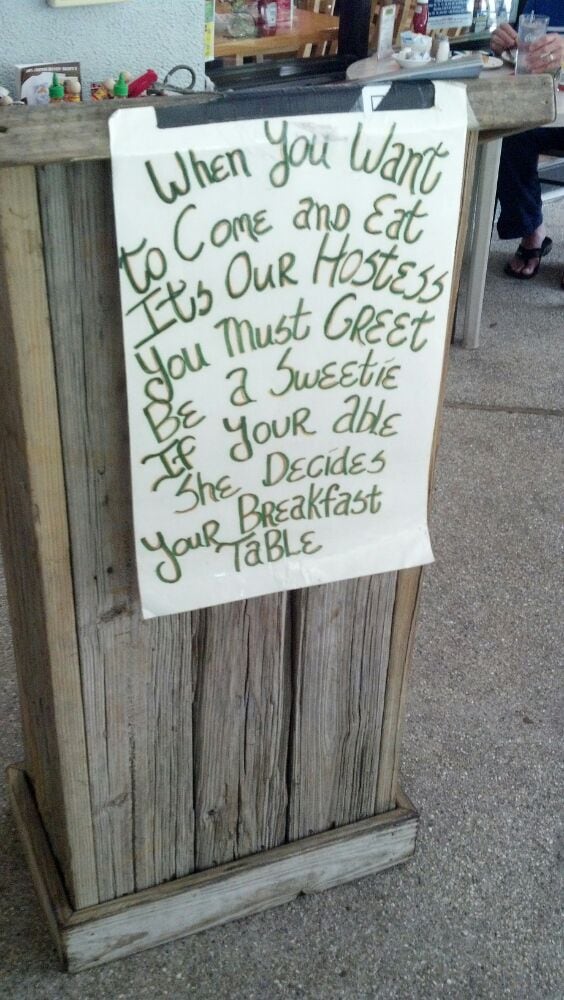 When You Want
to Come and Eat
Its Our Hostess
You Must GREET
Be a Sweetie
If your able
She Decides
your Breakfast
TaBLE